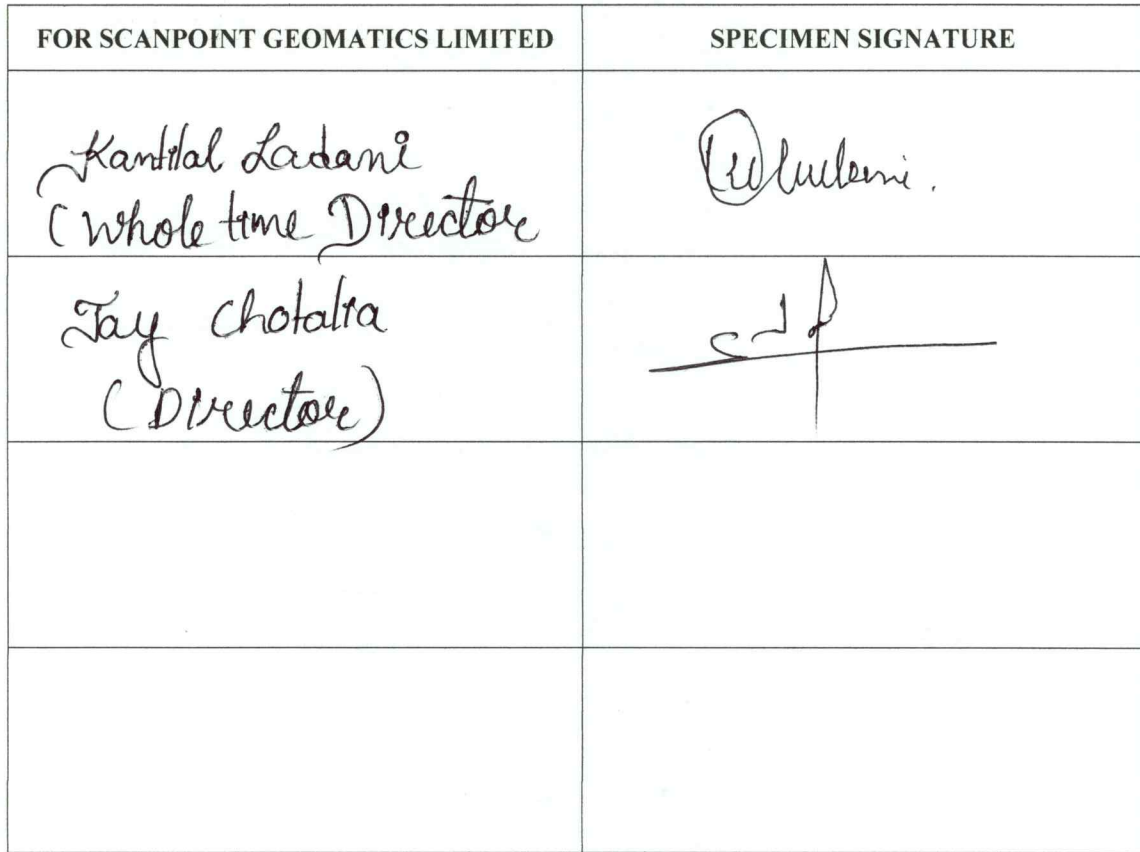 FOR SCANPOINT GEOMATICS LIMITED
SPECIMEN SIGNATURE
Kantilal Ladani
(Whole time Director
Jay Chotalia
(Director)